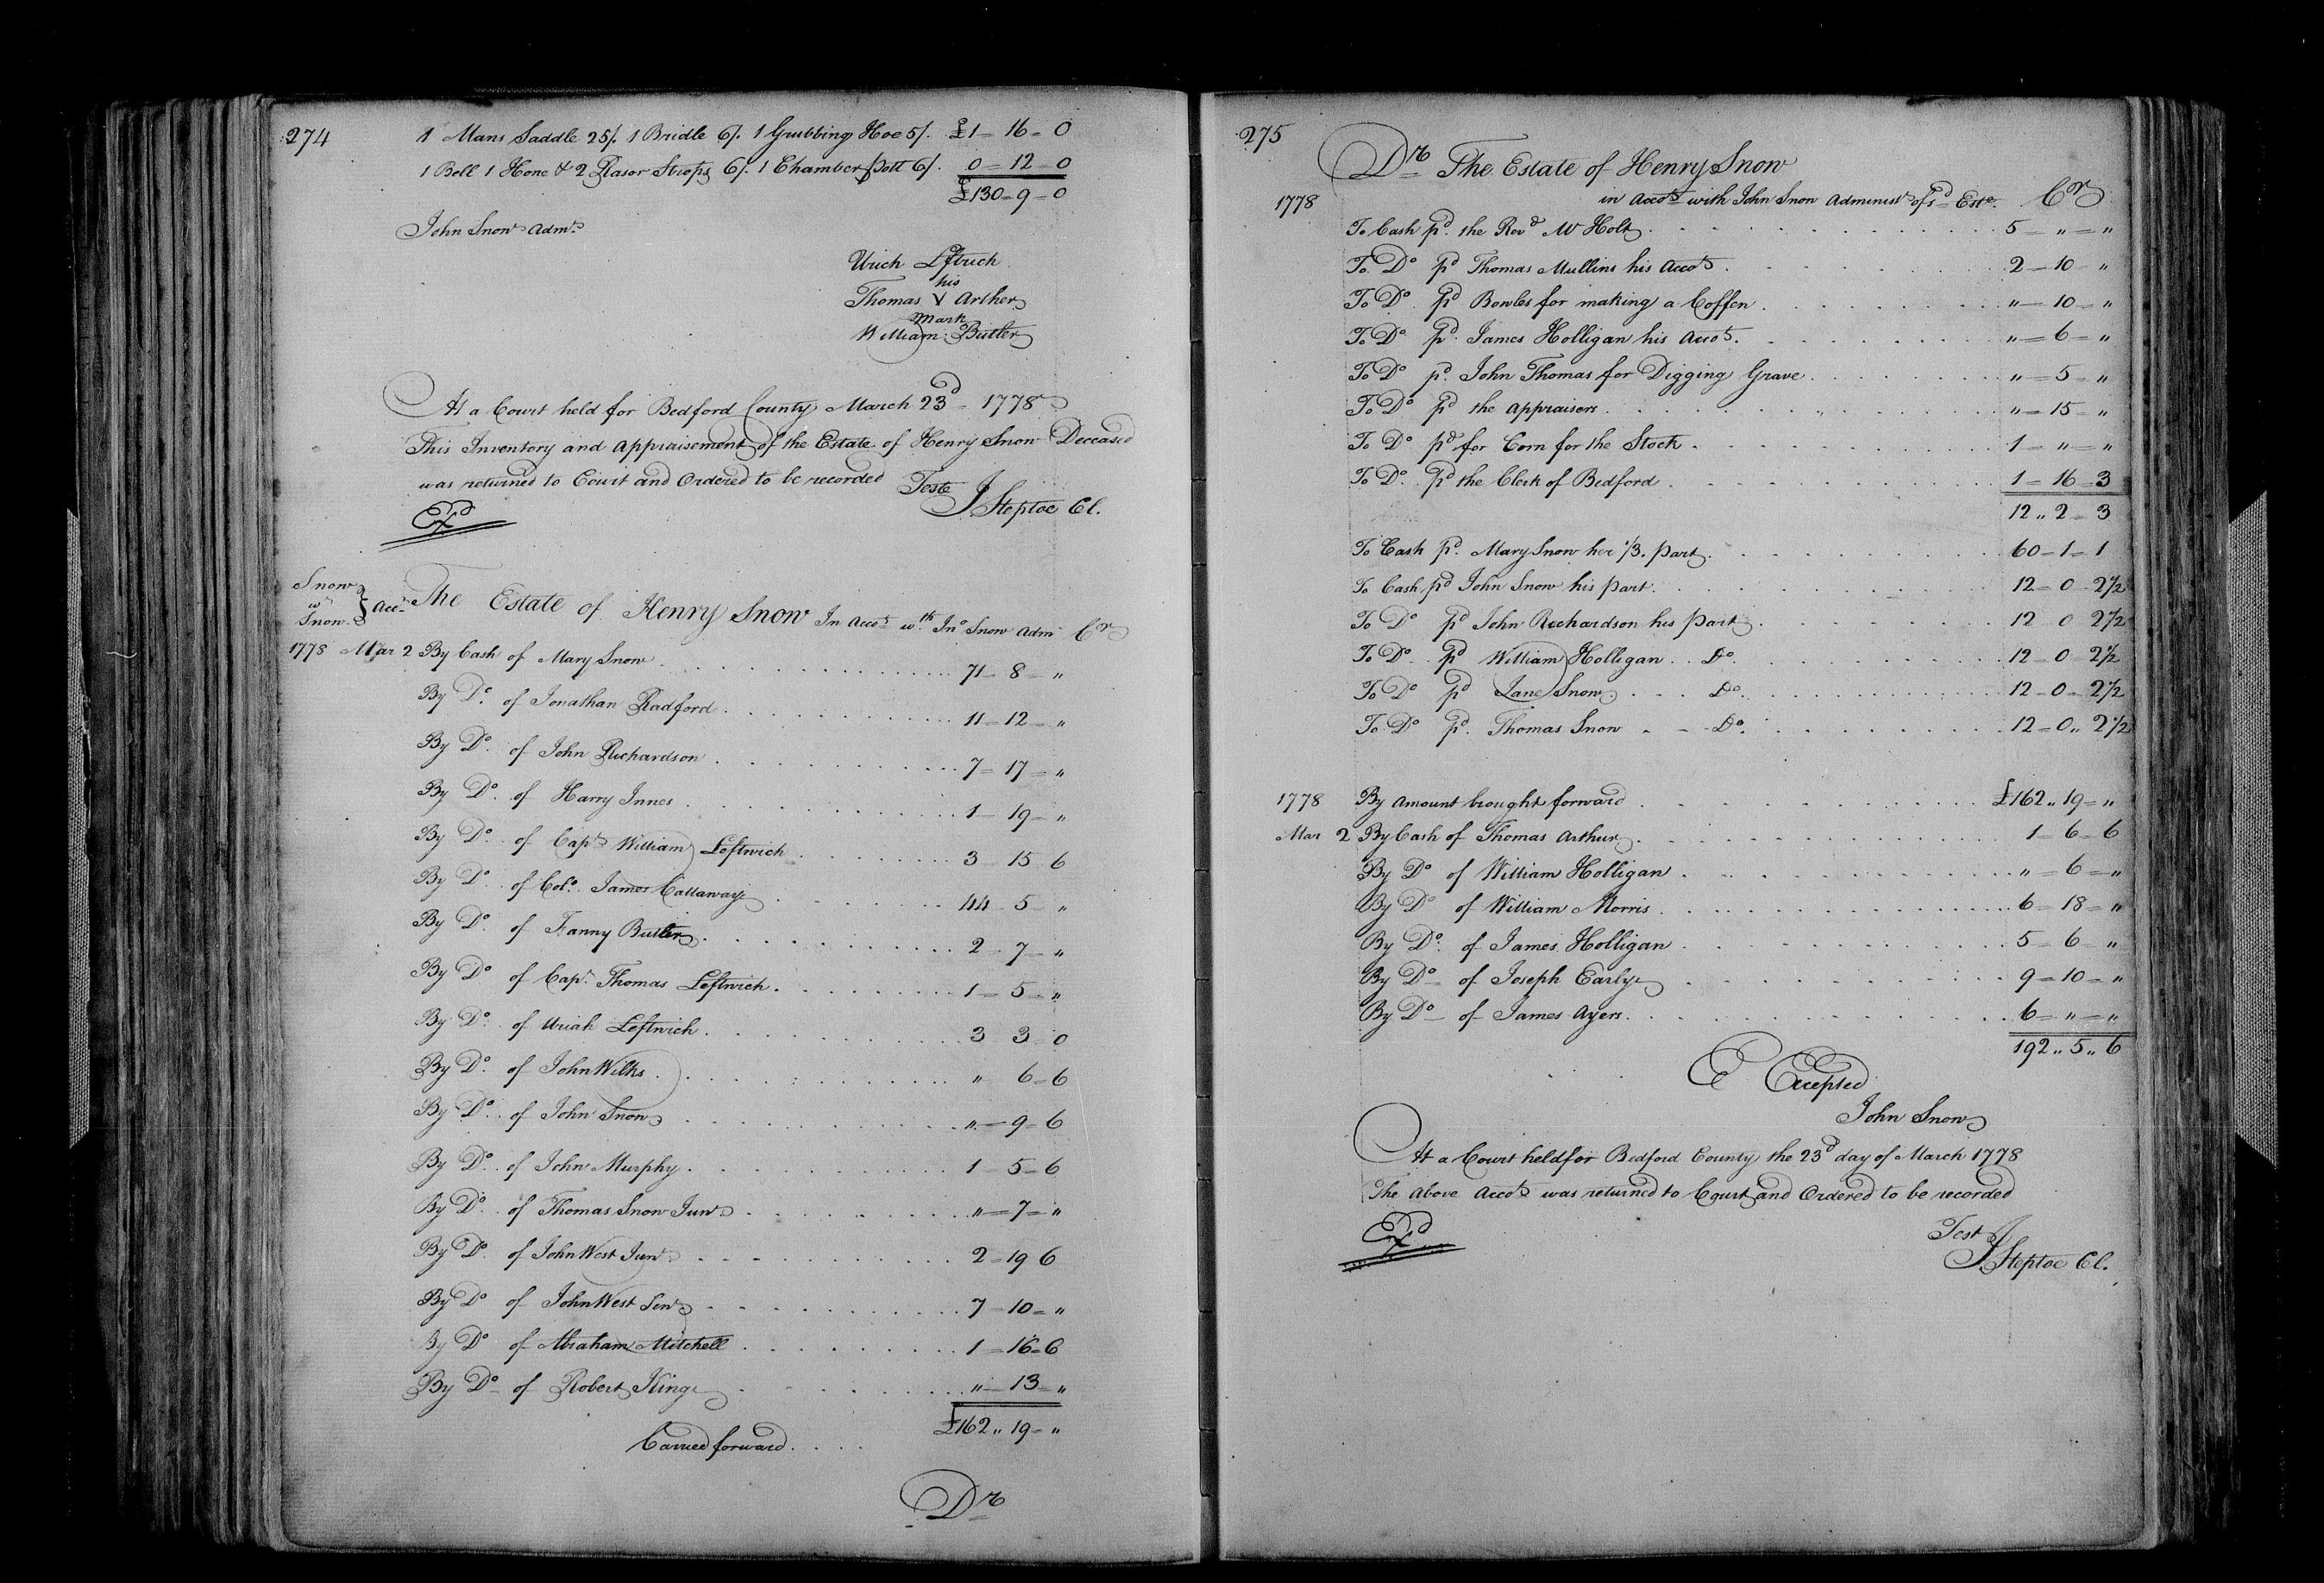 274
1 Mans Saddle 25/. 1 Bridle 6/. 1 Grubbing Hoe 5/. £1 = 16 = 0
1 Bell 1 Hone & 2 Rasor Strops 6/. 1 Chamber Pott 6/. 0 = 12 = 0
£130 = 9 = 0
John Snow Admr.
Urich Leftwich
his
Thomas V Arther
mark
William Butler
At a Court held for Bedford County March 23d 1778
This Inventory and Appraisement of the Estate of Henry Snow Deceased
was returned to Court and Ordered to be recorded Teste
J Steptoe Cl.
Exd
Snow
wth
Snow } Acct.
The Estate of Henry Snow In Acct. wth Jno Snow Adm Cr
1778 Mar 2 By Cash of Mary Snow 71 = 8 = "
By Do. of Jonathan Radford 11 = 12 = "
By Do. of John Richardson 7 = 17 = "
By Do. of Harry Innes 1 = 19 = "
By Do. of Capt. William Leftwich 3 15 6
By Do. of Colo. James Callaway 44 5 "
By Do. of Fanny Butler 2 7 "
By Do. of Capt. Thomas Leftwich 1 = 5 = "
By Do. of Uriah Leftwich 3 3 0
By Do. of John Wilks " 6 = 6
By Do. of John Snow " = 9 = 6
By Do. of John Murphy 1 = 5 = 6
By Do. of Thomas Snow Junr " = 7 = "
By Do. of John West Junr 2 = 19 6
By Do. of John West Senr 7 = 10 = "
By Do of Abraham Mitchell 1 = 16 = 6
By Do of Robert King " = 13 = "
£162 " 19 = "
Carried forward
Dr
275
Dr The Estate of Henry Snow
1778 in Accot. with John Snow Administr of sd Este. Cr
To Cash pd. the Revd Mr Holt 5 = " = "
To Do pd Thomas Mullins his Accot. 2 = 10 = "
To Do. pd Bowles for making a Coffen " = 10 = "
To Do pd. James Holligan his Accot. " = 6 = "
To Do pd. John Thomas for Digging Grave " = 5 = "
To Do pd the Appraisers " = 15 = "
To Do pd for Corn for the Stock 1 = " = "
To Do. pd the Clerk of Bedford 1 = 16 = 3
12 " 2 = 3
To Cash pd. Mary Snow her 1/3. part 60 = 1 = 1
To Cash pd John Snow his part 12 = 0 = 2 1/2
To Do pd John Richardson his part 12 0 2 1/2
To Do pd William Holligan Do. 12 = 0 = 2 1/2
To Do pd Jane Snow Do. 12 = 0 = 2 1/2
To Do pd. Thomas Snow Do. 12 = 0 " 2 1/2
1778 By Amount brought forward £162 " 19 = "
Mar 2 By Cash of Thomas Arthur 1 = 6 = 6
By Do of William Holligan " = 6 = "
By Do of William Morris 6 = 18 = "
By Do. of James Holligan 5 = 6 "
By Do of Joseph Early 9 = 10 = "
By Do of James Ayers 6 = " = "
192 " 5 " 6
E Excepted
John Snow
At a Court held for Bedford County the 23d day of March 1778
The Above Accot. was returned to Court and Ordered to be recorded
Exd
Test
J Steptoe Cl.